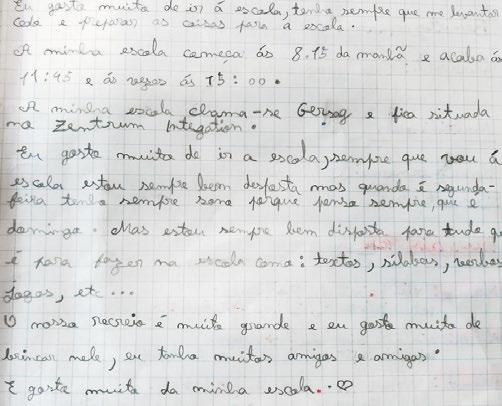 Eu gosto muito de ir á escola, tenho sempre que me levantar
cedo e preparar as coisas para a escola.
A minha escola começa ás 8.15 da manhã e acaba ás
11:45 e ás vezes ás 15:00.
A minha escola chama-se Gersag e fica situada
na Zentrum Integation.
Eu gosto muito de ir a escola, sempre que vou á
escola estou sempre bem desposta mas quando é segunda-
feira tenho sempre sono porque penso sempre, que é
domingo. Mas estou sempre bem disposta para tudo q
é para fazer na escola como: textos, sílabas, verbos
Jogos, etc...
O nosso recreio é muito grande e eu gosto muito de
brincar nele, eu tenho muitos amigos e amigas.
E gosto muito da minha escola. ♡